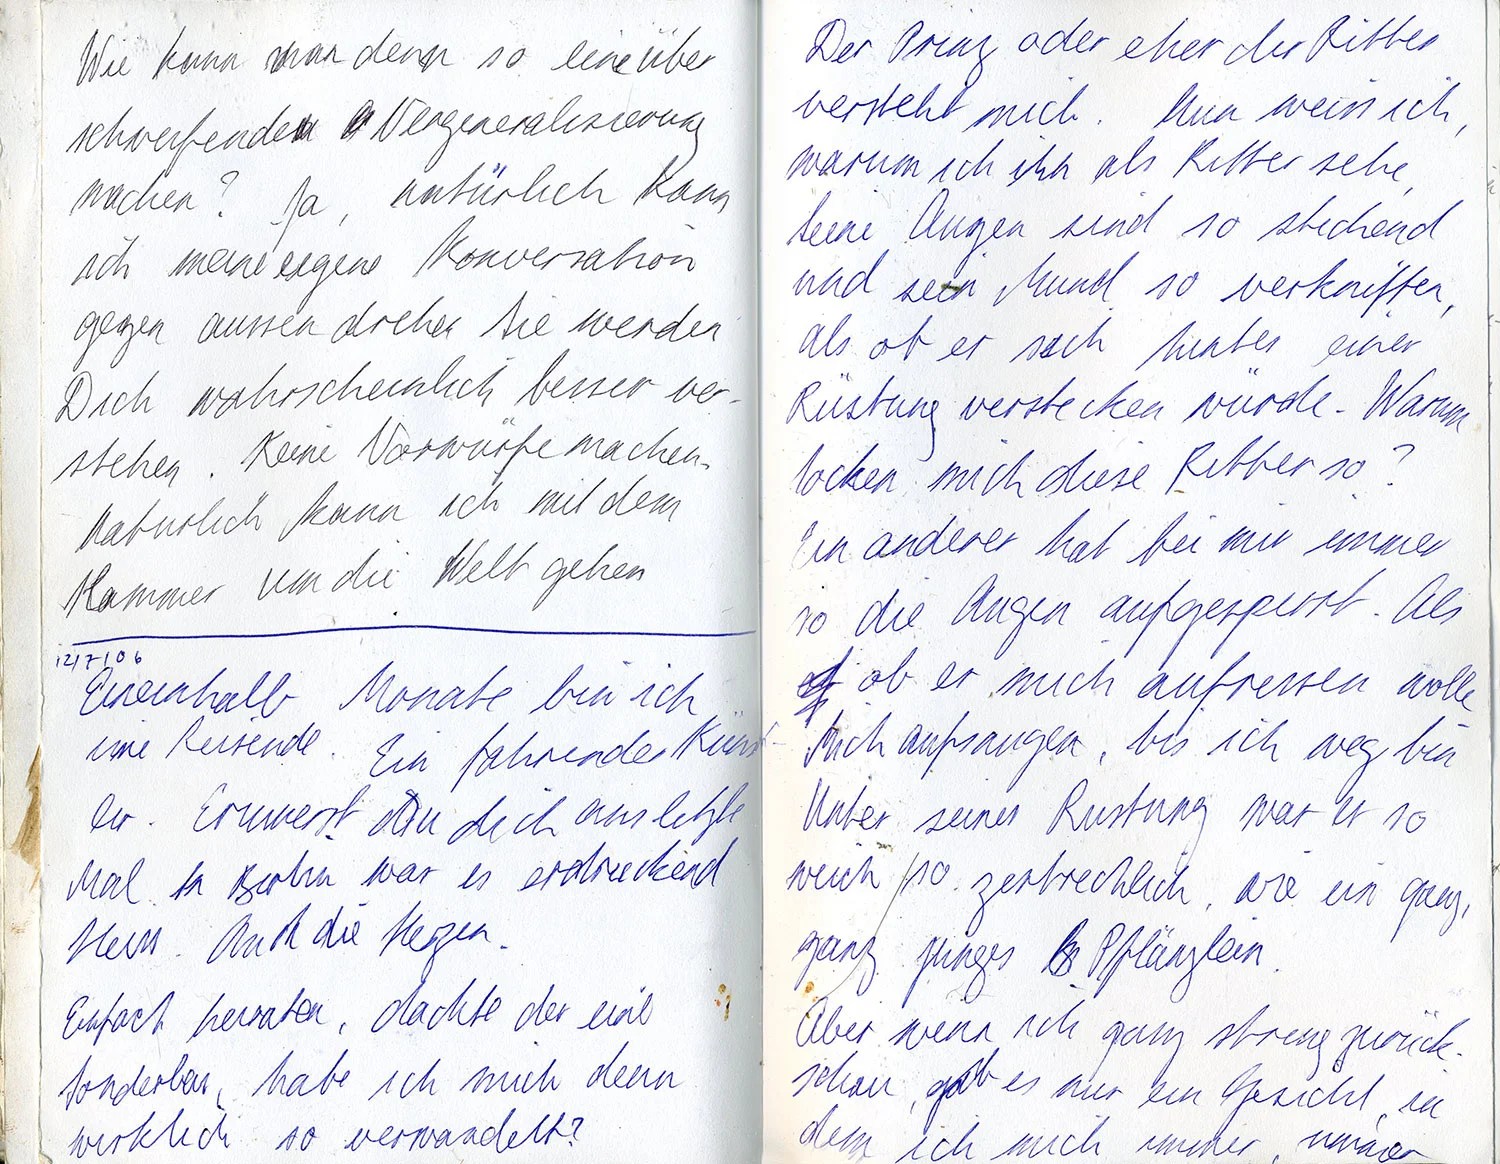 Wie kann man denn so eine über
schweifende Vergeneralisierung
machen? Ja, natürlich kann
ich meine eigene Konversation
gegen aussen drehen Sie werden
Dich wahrscheinlich besser ver-
stehen. Keine Vorwürfe machen.
Natürlich kann ich mit dem
Hammer um die Welt gehen
12/7/06
Eineinhalb Monate bin ich
eine Reisende. Ein fahrender Künst-
ler. Erinnerst Du dich ans letzte
Mal in Berlin war es erdrückend
Heiss. Auch die Herzen.
Einfach heiraten, dachte der eine
Sonderbar, habe ich mich denn
wirklich so verwandelt?
Der Prinz oder eher der Ritter
versteht mich. Nun weiss ich,
warum ich ihn als Ritter sehe,
seine Augen sind so stechend
und sein Mund so verkniffen,
als ob er sich hinter einer
Rüstung verstecken würde. Warum
locken mich diese Ritter so?
Ein anderer hat bei mir immer
so die Augen aufgesperrt. Als
ob er mich auffressen wolle
Mich aufsaugen, bis ich weg bin
Unter seiner Rüstung war er so
weich, so zerbrechlich, wie ein ganz,
ganz junges Pflänzlein.
Aber wenn ich ganz streng zurück-
schau, gab es nur ein Gesicht, in
dem ich mich immer, immer